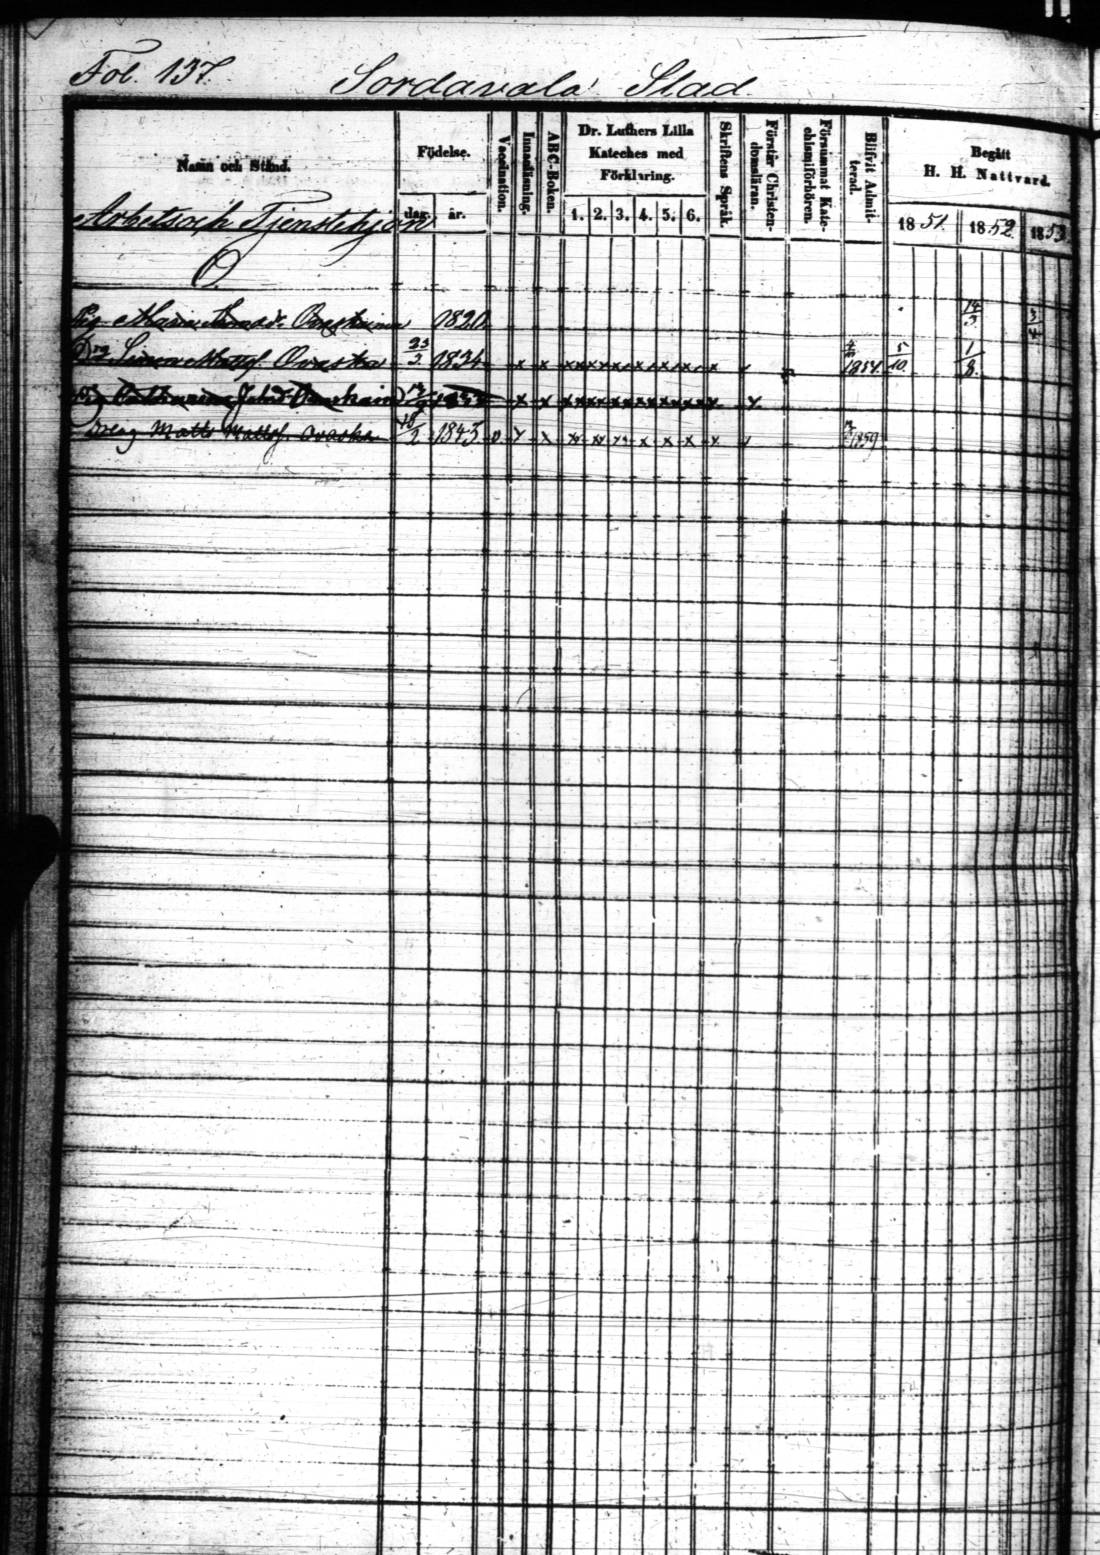 Fol. 137.
Sordavala Stad
Namn och Stånd.
Födelse.
dag. år.
Vaccination.
Innanläsning.
ABC-Boken.
Dr. Luthers Lilla
Kateches med
Förklaring.
1. 2. 3. 4. 5. 6.
Skriftens Språk.
Förstår Christen-
domsläran.
Försummat Kate-
chismiförhören.
Blifvit Admit-
terad.
Begått
H. H. Nattvard.
1851. 1852. 1853
Arbets och Tjenstehjon
O.
Pig. Maria 1820 14/3 3/4
Drg Simon Mattss. Ovaska 23/2 1834 x x x x x x x x x 1854 5/10 1/8
Catharina x x x x x x x x x x
Drg Matts Mattss. Ovaska 18/2 1843 x x x x x x x x 1859